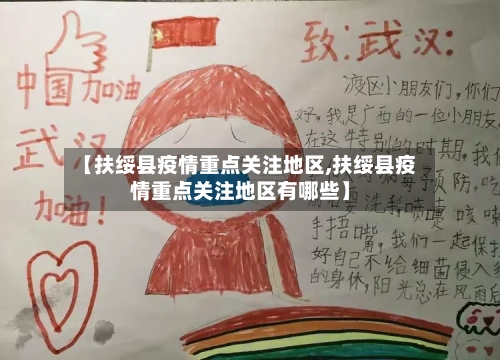 中国加油
武汉
加油！
致：武汉：
疫区小朋友们，你们
好，我是广西的一位小朋友，
在这特别的时期，我们
预防，吃
【扶绥县疫情重点关注地区,扶绥县疫
情重点关注地区有哪些】
洗手，喷嚏 咳嗽
手捂嘴，我们一起保护
好自己不给细菌侵入
的身体，阳光总在风雨后